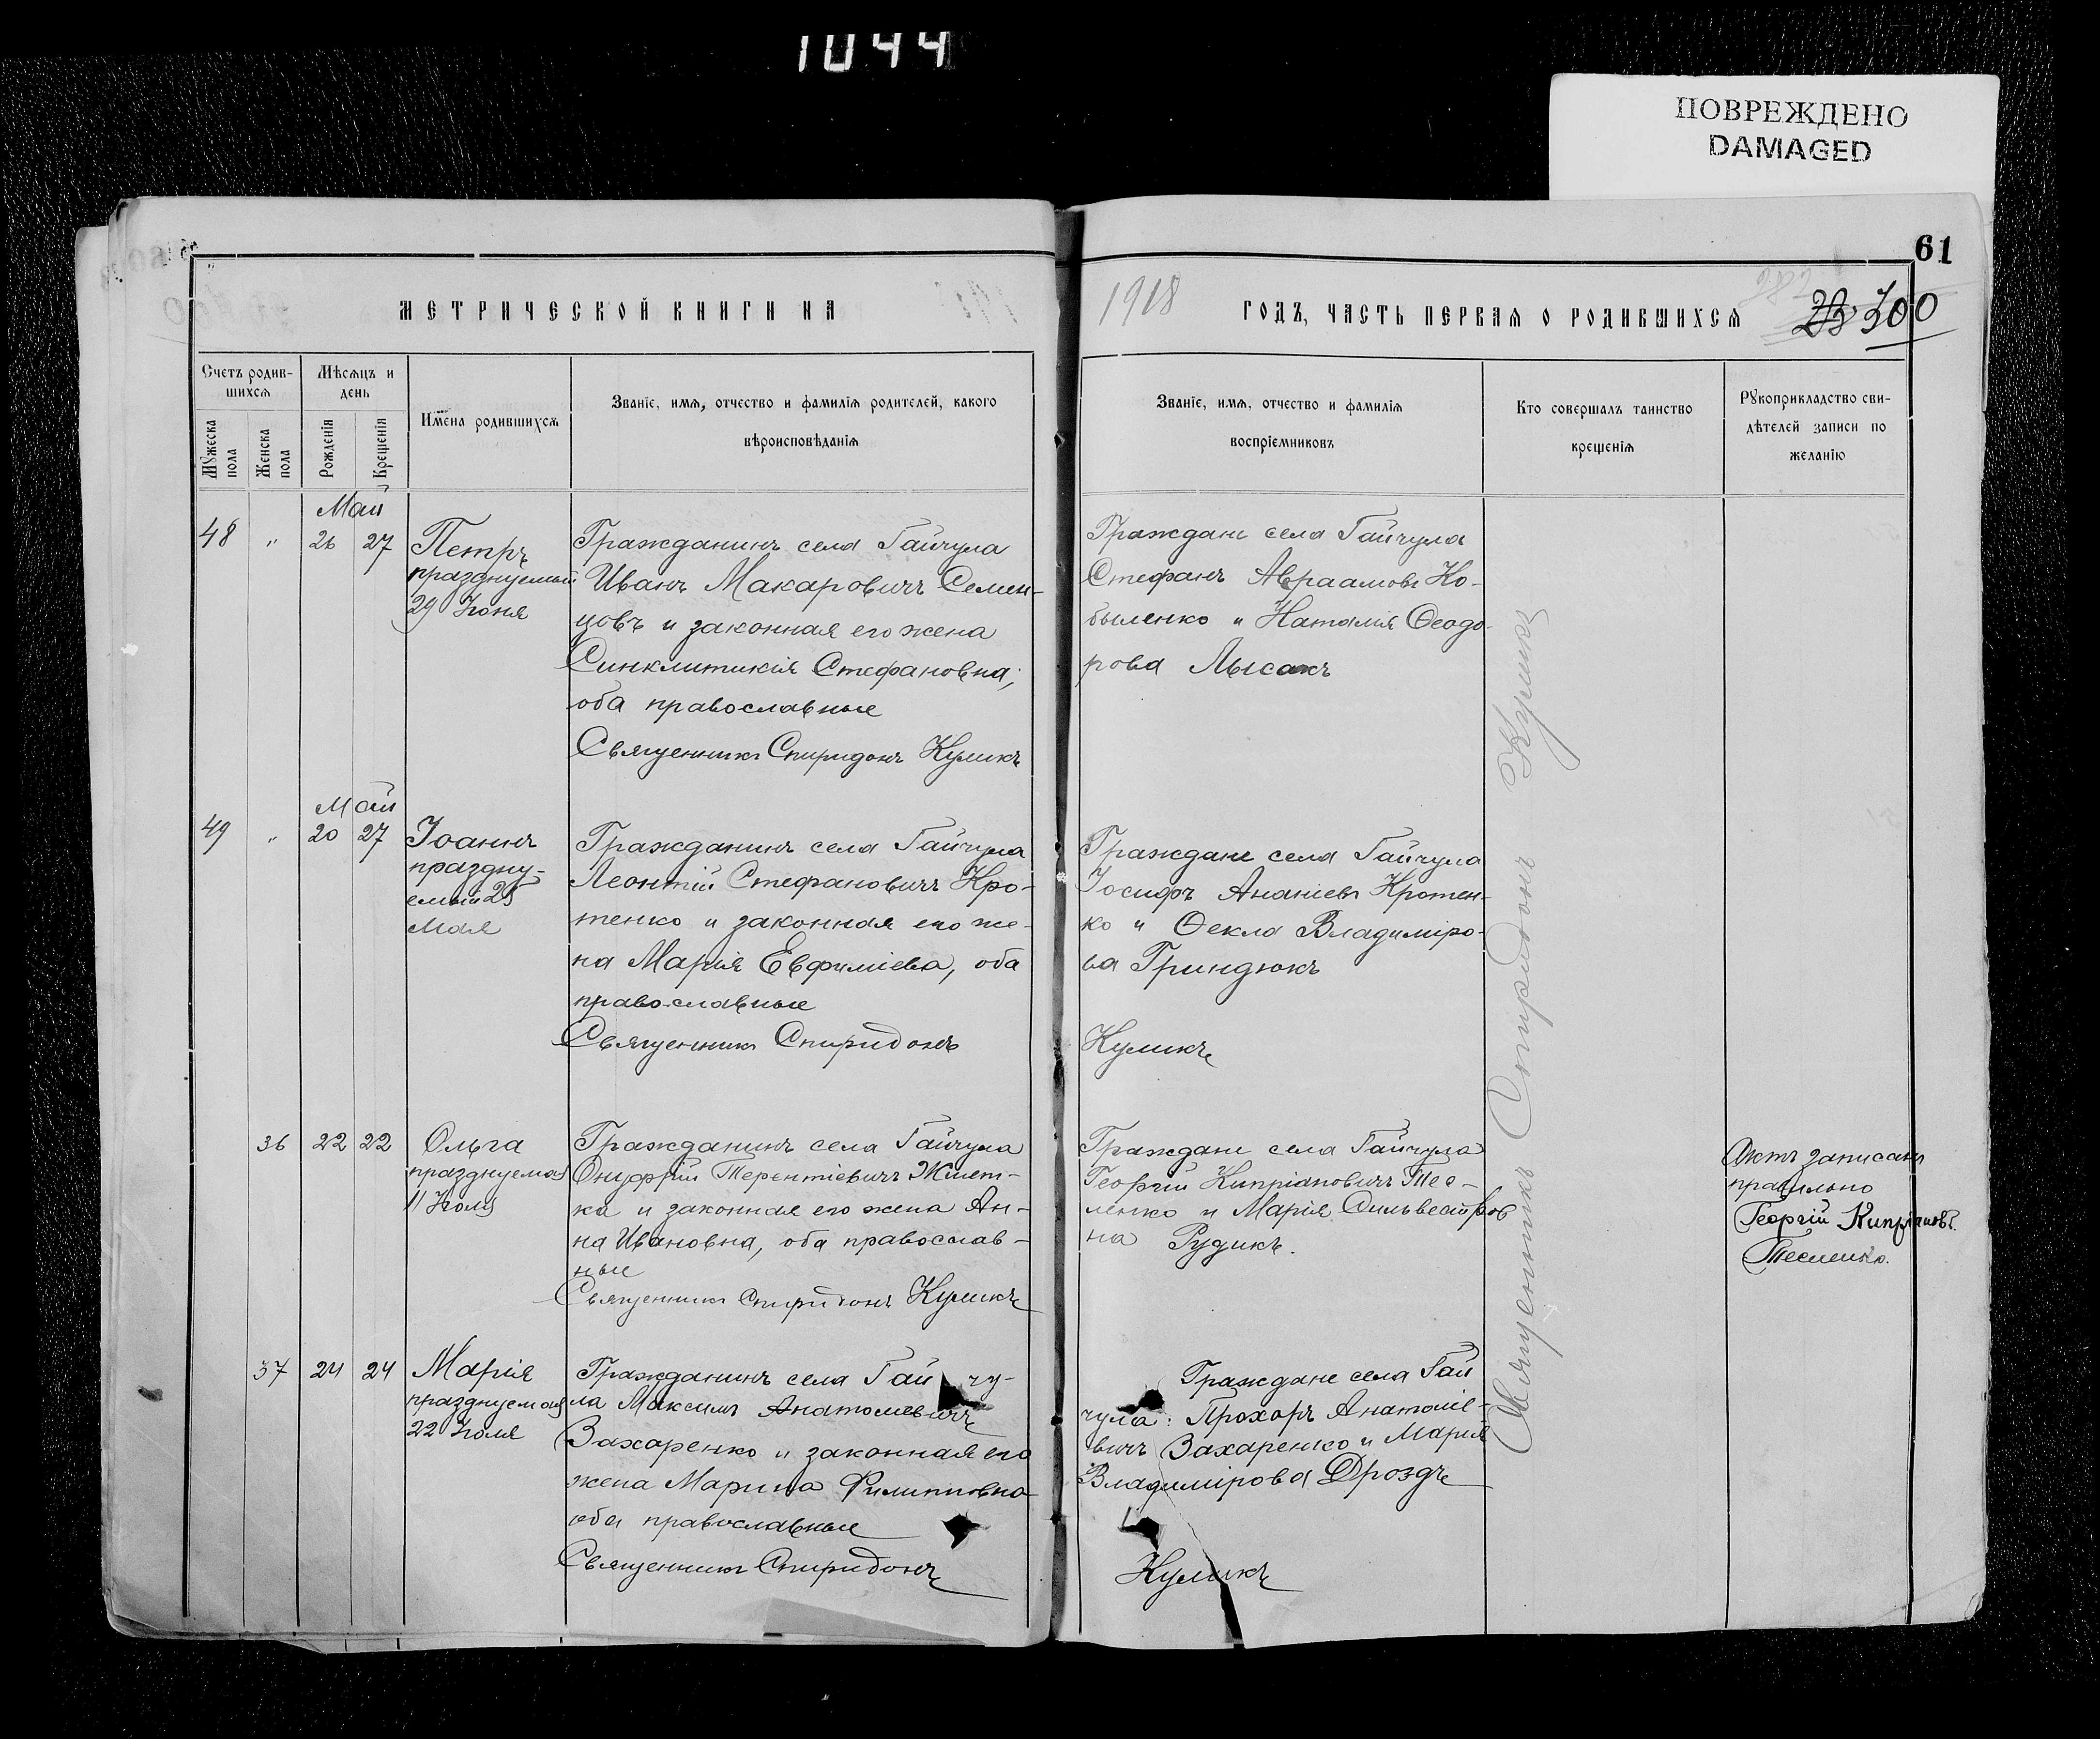 1044
ПОВРЕЖДЕНО
DAMAGED
61
МЕТРИЧЕСКОЙ КНИГИ НА
1918
ГОДЪ, ЧАСТЬ ПЕРВАЯ О РОДИВШИХСЯ
300
Счетъ родив-
шихся
Мѣсяцъ и
день
Мужеска
пола
Женска
пола
Рожденія
Крещенія
Имена родившихся
Званіе, имя, отчество и фамилія родителей, какого
вѣроисповѣданія
Званіе, имя, отчество и фамилія
воспріемниковъ
Кто совершалъ таинство
крещенія
Рукоприкладство сви-
дѣтелей записи по
желанію
Май
48 " 26 27
Петръ
празднуемый
29 Іюня
Гражданинъ села Гайчула
Иванъ Макаровичъ Семен-
цовъ и законная его жена
Синклитикія Стефановна;
оба православные
Священникъ Спиридонъ Куликъ
Граждане села Гайчула
Стефанъ Авраамовъ Ко-
быленко и Наталія Ѳеодо-
рова Лысакъ
Май
49 " 20 27
Іоаннъ
праздну-
емый 25
Мая
Гражданинъ села Гайчула
Леонтій Стефановичъ Кро-
тенко и законная его же-
на Марія Евфиміева, оба
православные
Священникъ Спиридонъ
Граждане села Гайчула
Іосифъ Ананіевъ Кротен-
ко и Ѳекла Владиміро-
ва Гриндюкъ
Куликъ
36 22 22
Ольга
празднуемая
11 Іюля
Гражданинъ села Гайчула
Онуфрій Терентіевичъ Жмет-
ка и законная его жена Ан-
на Ивановна, оба православ-
ные
Священникъ Спиридонъ Куликъ
Граждане села Гайчула
Георгій Кипріановичъ Тес-
ленко и Марія Сильвестров
на Рудикъ.
Актъ записанъ
правильно
Георгій Кипріановъ.
Тесленко.
37 24 24
Марія
празднуемая
22 Іюля
Гражданинъ села Гай чу-
ла Максимъ Анатоліевичъ
Захаренко и законная его
жена Марина Филипповна
оба православные
Священникъ Спиридонъ
Граждане села Гай
чула: Прохоръ Анатоліе-
вичъ Захаренко и Марія
Владимірова Дроздъ
Куликъ
Священникъ Спиридонъ Куликъ